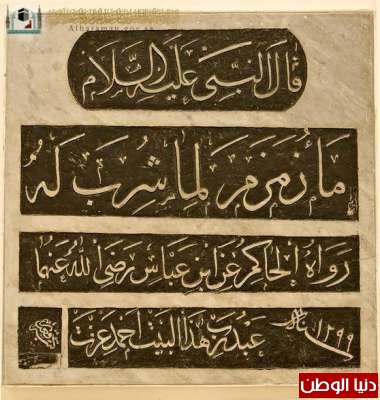 Alharamain.gov.sa
قَالَ النَّبِيُّ عَلَيْهِ السَّلَامُ
مَاءُ زَمْزَمَ لِمَا شُرِبَ لَهُ
رَوَاهُ الْحَاكِمُ عَنْ ابْنِ عَبَّاسٍ رَضِيَ اللّٰهُ عَنْهُمَا
عبد رب هذا البيت احمد عزت
١٢٩٩
دنيا الوطن